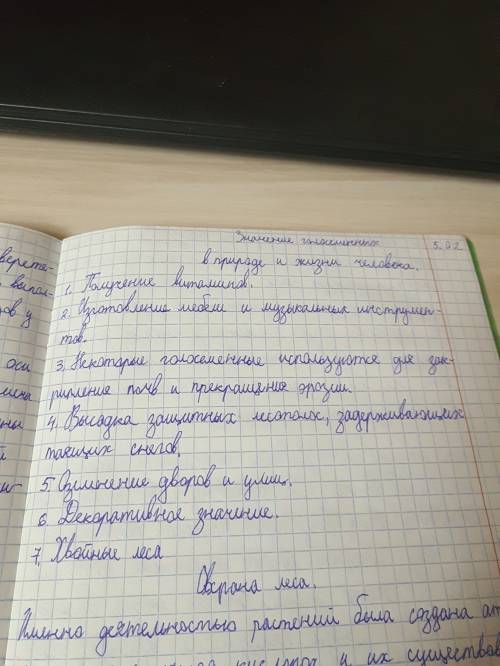 Значение голосеменных 5.02
в природе и жизни человека.
1. Получение витаминов.
2. Изготовление мебели и музыкальных инструмен-
тов.
3. Некоторые голосеменные используются для зак-
рипления почв и прекращения эрозии.
4. Высадка защитных лесополок, задерживающих
таящих снегов.
5. Озелнение дворов и улиц.
6. Декоративное значение.
7. Хвойные леса
Охрана леса.
Именно деятельностью растений была создана ат
кислород и их существов